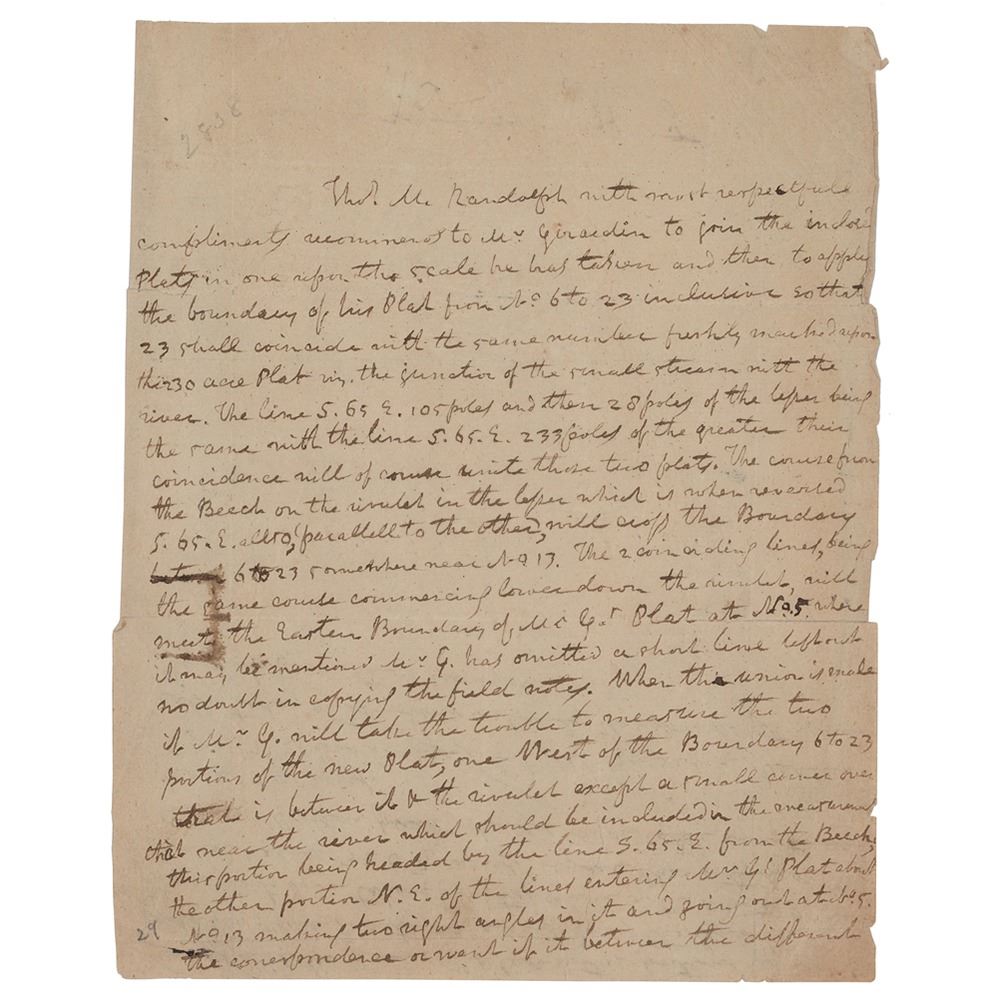 2838
Tho.s M. Randolph with most respectfull
compliments recommends to Mr Girardin to join the inclosd
Plats in one upon the scale he has taken and then to apply
the boundary of his Plat from No. 6 to 23 inclusive so that
23 shall coincide with the same number freshly marked upon
the 230 acre Plat viz. the junction of the small stream with the
river. The line S. 65 E. 105 poles and then 28 poles of the lesser being
the same with the line S. 65. E. 233 poles of the greater their
coincidence will of course unite those two plats. The course from
the Beech on the rivulet in the lesser which is when reversed
S. 65. E. allso, (parallell to the other, will cross the Boundary
6 to 23 somewhere near No 13. The 2 coinciding lines, being
the same course commencing lower down the rivulet, will
meet the Eastern Boundary of Mr G's Plat at No. 5. where
it may be mentioned Mr G. has omitted a short line left out
no doubt in copying the field notes. When the union is made
if Mr G. will take the trouble to measure the two
portions of the new Plat, one West of the Boundary 6 to 23
that is between it & the rivulet except a small corner over
that near the river which should be included in the measurement
this portion being headed by the line S. 65. E. from the Beech;
the other portion N. E. of the lines entering Mr G's Plat about
No 13 making two right angles in it and going out at No. 5.
the correspondence or want of it between the different
29